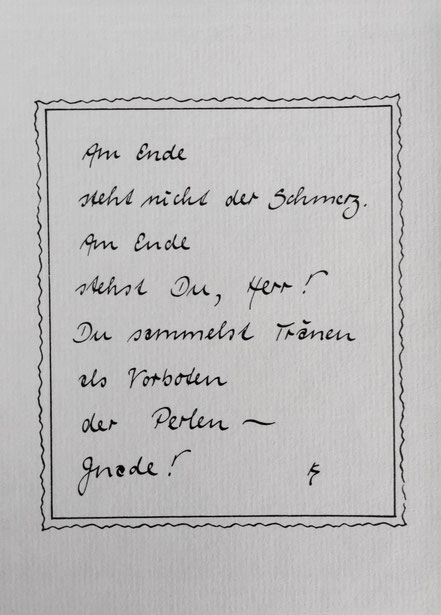 Am Ende
steht nicht der Schmerz.
Am Ende
stehst Du, Herr!
Du sammelst Tränen
als Vorboten
der Perlen –
Gnade!